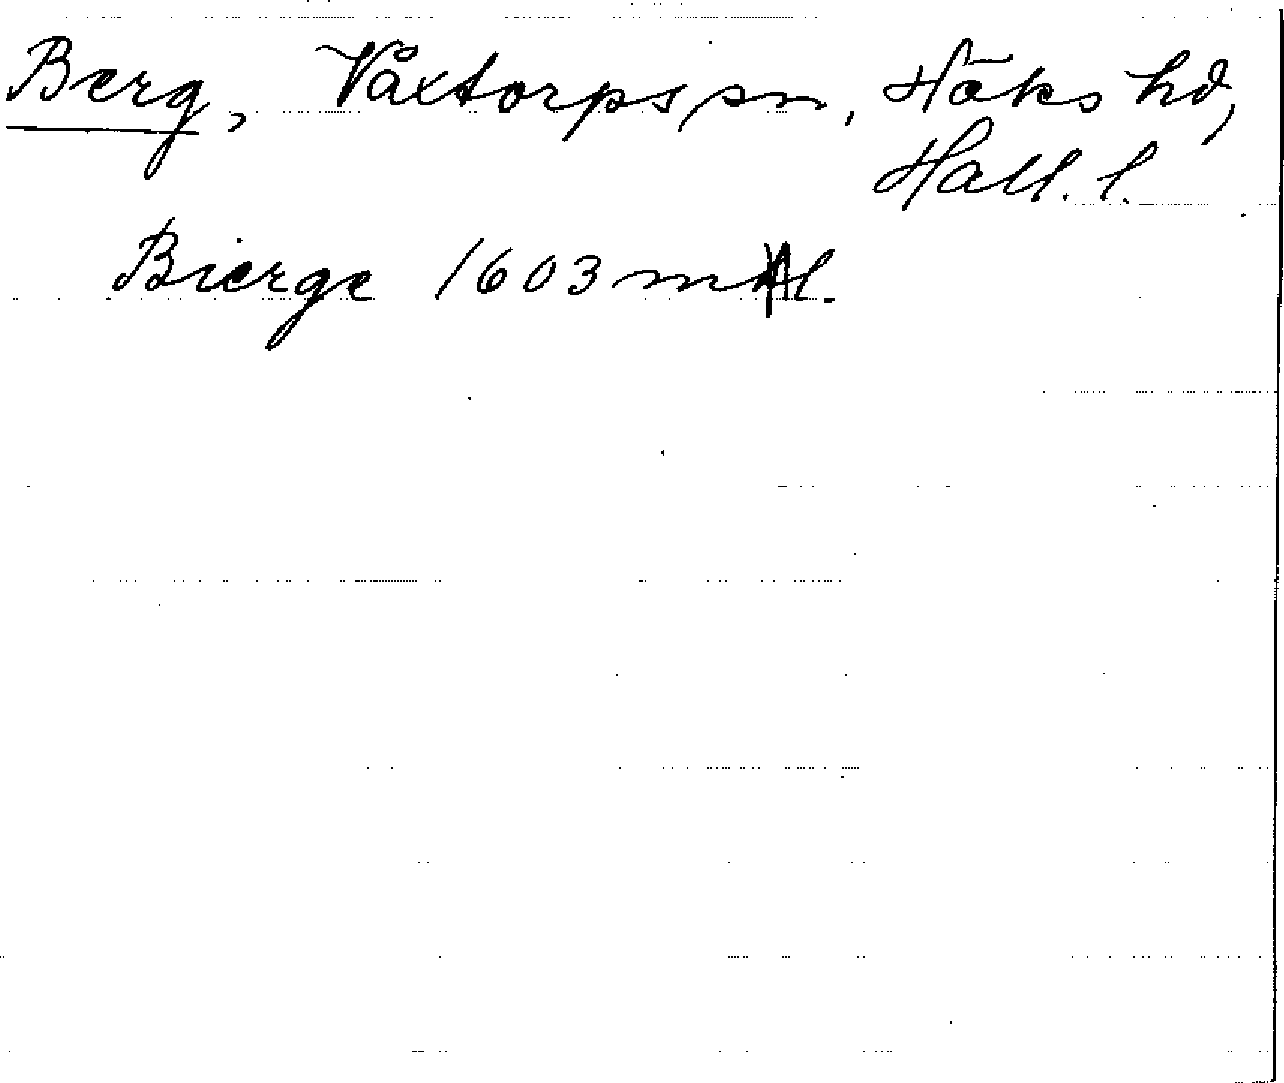 Berg, Våxtorps sn, Höks hd,
Hall. l.
Bierge 1603